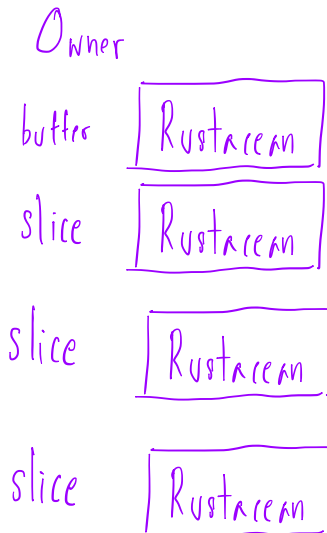 Owner
buffer Rustacean
slice Rustacean
slice Rustacean
slice Rustacean